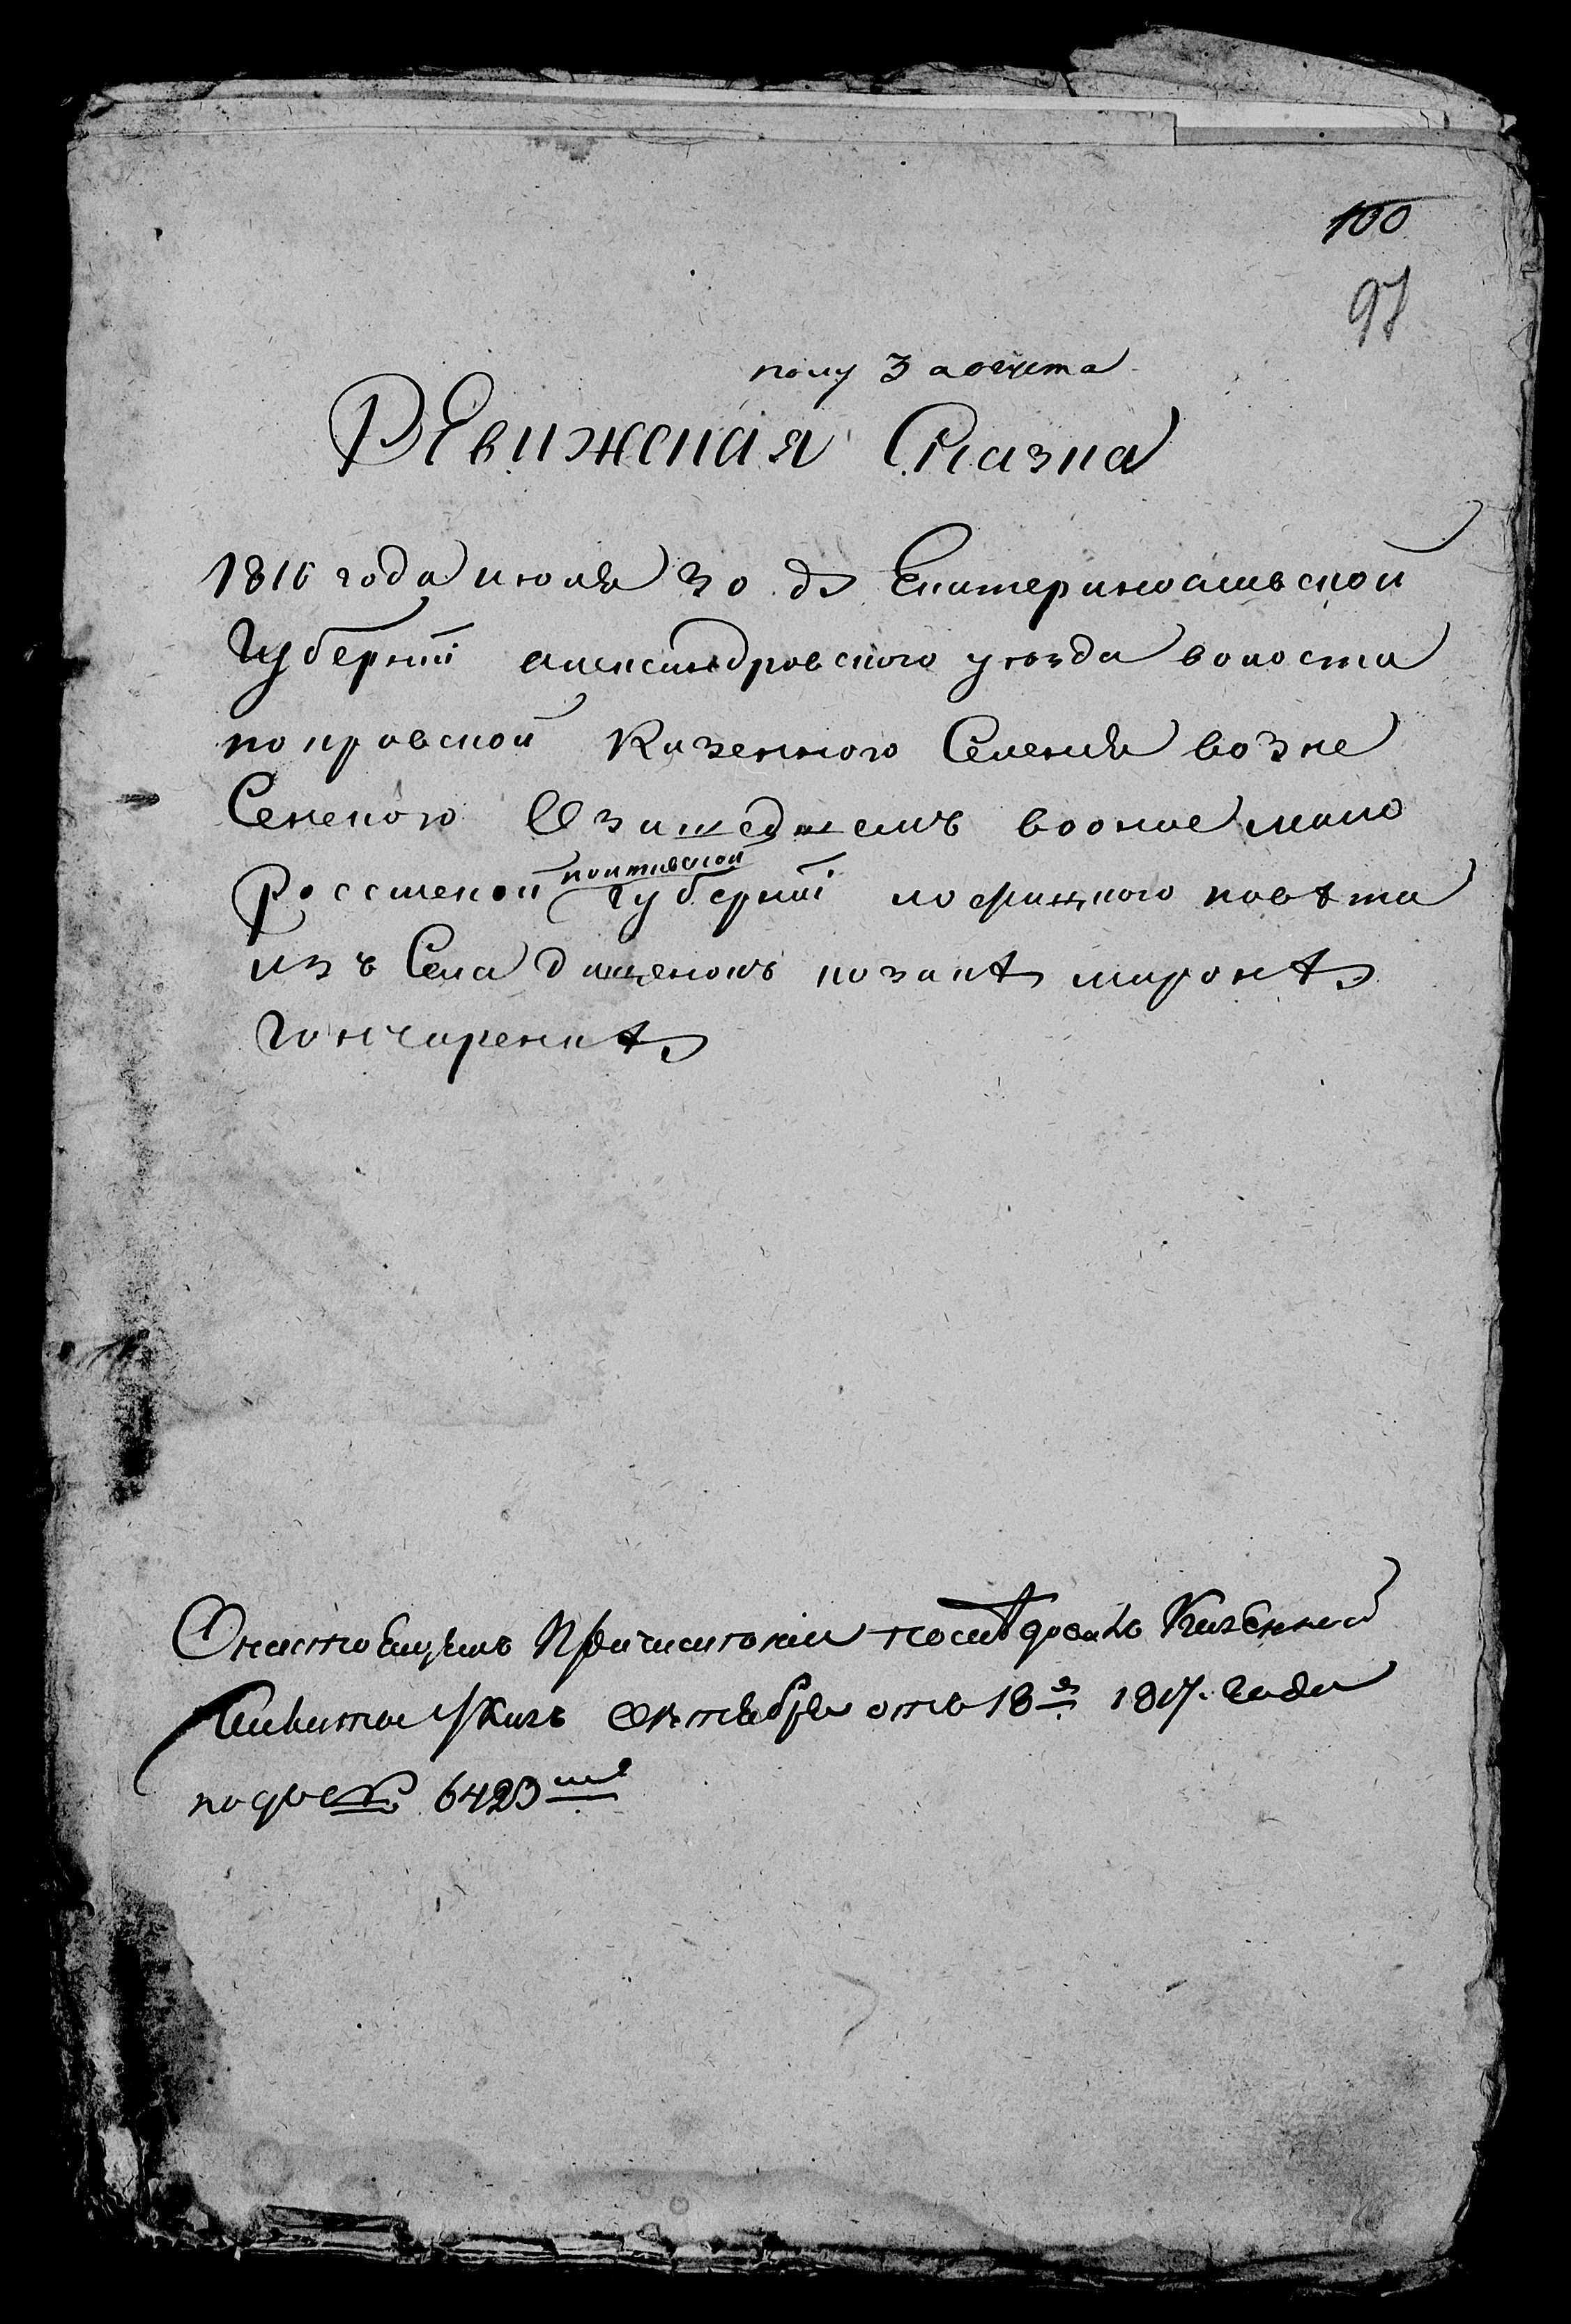 100
97
полу 3 августа
Ревижская Сказка
1816 года июля 30 дз Екатериносльвской
Губернии александровского уезда волости
покровской Казенного Селения возне
Сенского О зашедшемъ вооное мало
Россиской полтавской губернии лофицкого повѣта
изъ Села дащенокъ козакѣ миронѣ
гончаренкѣ
О настоящемъ Причислении последовалъ Казенной
Палаты Указъ Октября отъ 18го 1817 года
подъ № 6423мъ